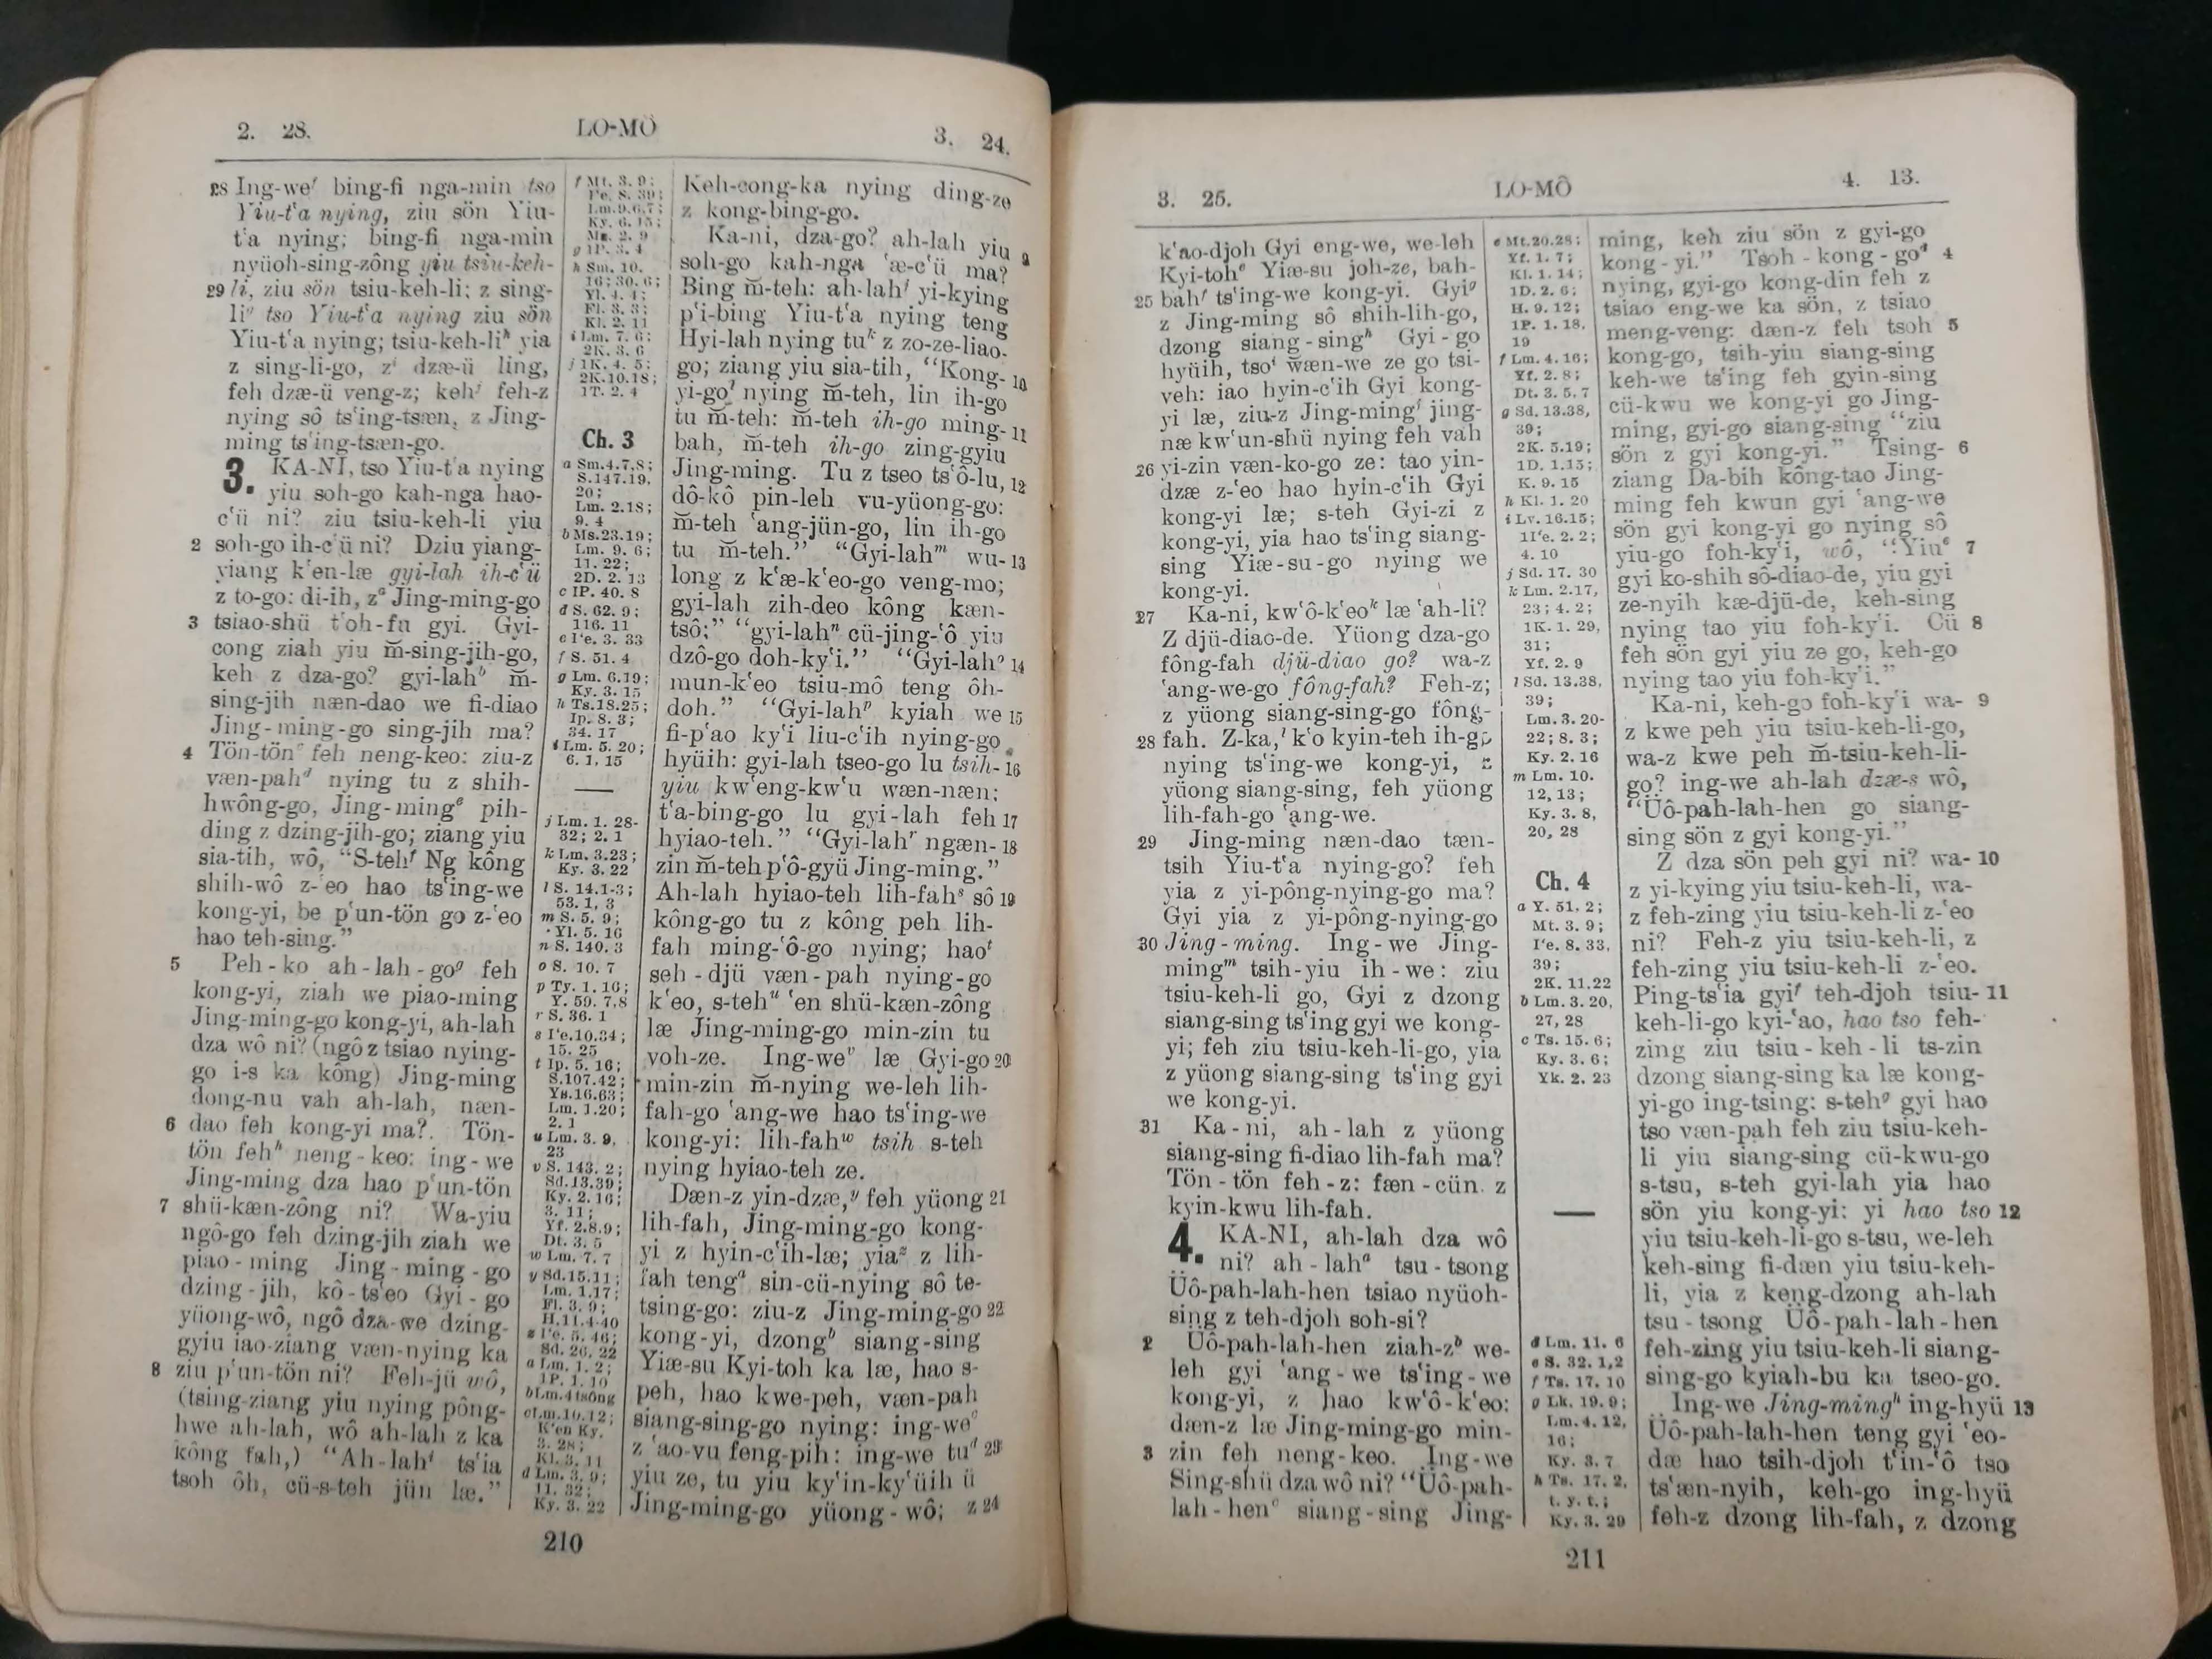 2. 28. LO-MÔ 3. 24.
28 Ing-weᶠ bing-fi nga-min tso
Yiu-t‘a nying, ziu sön Yiu-
t‘a nying; bing-fi nga-min
nyüoh-sing-zông yiu tsiu-keh-
29 li, ziu sön tsiu-keh-li: z sing-
liᵍ tso Yiu-t‘a nying ziu sön
Yiu-t‘a nying; tsiu-keh-liʰ yia
z sing-li-go, zⁱ dzæ-ü ling,
feh dzæ-ü veng-z; kehʲ feh-z
nying sô ts‘ing-tsæn, z Jing-
ming ts‘ing-tsæn-go.
3. KA-NI, tso Yiu-t‘a nying
yiu soh-go kah-nga hao-
c‘ü ni? ziu tsiu-keh-li yiu
2 soh-go ih-c‘ü ni? Dziu yiang-
yiang k‘en-læ gyi-lah ih-c‘ü
z to-go: di-ih, zᵃ Jing-ming-go
3 tsiao-shü t‘oh-fu gyi. Gyi-
cong ziah yiu m̆-sing-jih-go,
keh z dza-go? gyi-lahᵇ m̆-
sing-jih næn-dao we fi-diao
Jing-ming-go sing-jih ma?
4 Tön-tönᶜ feh neng-keo: ziu-z
væn-pahᵈ nying tu z shih-
hwông-go, Jing-mingᵉ pih-
ding z dzing-jih-go; ziang yiu
sia-tih, wô, “S-tehᶠ Ng kông
shih-wô z-‘eo hao ts‘ing-we
kong-yi, be p‘un-tön go z-‘eo
hao teh-sing.”
5 Peh-ko ah-lah-goᵍ feh
kong-yi, ziah we piao-ming
Jing-ming-go kong-yi, ah-lah
dza wô ni? (ngô z tsiao nying-
go i-s ka kông) Jing-ming
dong-nu vah ah-lah, næn-
6 dao feh kong-yi ma?. Tön-
tön fehʰ neng-keo: ing-we
Jing-ming dza hao p‘un-tön
7 shü-kæn-zông ni? Wa-yiu
ngô-go feh dzing-jih ziah we
piao-ming Jing-ming-go
dzing-jih, kô-ts‘eo Gyi-go
yüong-wô, ngô dza-we dzing-
gyiu iao-ziang væn-nying ka
8 ziu p‘un-tön ni? Feh-jü wô,
(tsing-ziang yiu nying pông-
hwe ah-lah, wô ah-lah z ka
kông fah,) “Ah-lahⁱ ts‘ia
tsoh ôh, cü-s-teh jün læ.”
f Mt. 3. 9;
I‘e. 8. 39;
Lm.9.6,7;
Ky. 6. 15;
Ms. 2. 9
g 1P. 3. 4
h Sm. 10.
16; 30. 6;
Yl. 4. 4;
Fl. 3. 3;
Kl. 2. 11
i Lm. 7. 6;
2K. 3. 6
j 1K. 4. 5;
2K.10.18;
1T. 2. 4
Ch. 3
a Sm.4.7,8;
S.147.19,
20;
Lm. 2.18;
9. 4
b Ms.23.19;
Lm. 9. 6;
11. 22;
2D. 2. 13
c IP. 40. 8
d S. 62. 9;
116. 11
e I‘e. 3. 33
f S. 51. 4
g Lm. 6.19;
Ky. 3. 15
h Ts.18.25;
Ip. 8. 3;
34. 17
i Lm. 5. 20;
6. 1, 15
j Lm. 1. 28-
32; 2. 1
k Lm. 3.23;
Ky. 3. 22
l S. 14.1-3;
53. 1, 3
m S. 5. 9;
Yl. 5. 16
n S. 140. 3
o S. 10. 7
p Ty. 1. 16;
Y. 59. 7,8
r S. 36. 1
s I‘e.10.34;
15. 25
t Ip. 5. 16;
S.107.42;
Ys.16.63;
Lm. 1.20;
2. 1
u Lm. 3. 9,
23
v S. 143. 2;
Sd.13.39;
Ky. 2. 16;
3. 11;
Yf. 2.8.9;
Dt. 3. 5
w Lm. 7. 7
y Sd.15.11;
Lm. 1.17;
Fl. 3. 9;
H.11.4-40
z I‘e. 5. 46;
Sd. 26, 22
a Lm. 1. 2;
1P. 1. 10
b Lm.4 tsông
c Lm.10.12;
K‘en Ky.
3. 28;
Kl. 3. 11
d Lm. 3. 9;
11. 32;
Ky. 3. 22
Keh-cong-ka nying ding-ze
z kong-bing-go.
Ka-ni, dza-go? ah-lah yiu 9
soh-go kah-nga ‘æ-c‘ü ma?
Bing m̆-teh: ah-lahʲ yi-kying
p‘i-bing Yiu-t‘a nying teng
Hyi-lah nying tuᵏ z zo-ze-liao-
go; ziang yiu sia-tih, “Kong- 10
yi-goˡ nying m̆-teh, lin ih-go
tu m̆-teh: m̆-teh ih-go ming- 11
bah, m̆-teh ih-go zing-gyiu
Jing-ming. Tu z tseo ts‘ô-lu, 12
dô-kô pin-leh vu-yüong-go:
m̆-teh ‘ang-jün-go, lin ih-go
tu m̆-teh.” “Gyi-lahᵐ wu- 13
long z k‘æ-k‘eo-go veng-mo;
gyi-lah zih-deo kông kæn-
tsô;” “gyi-lahⁿ cü-jing-‘ô yiu
dzô-go doh-ky‘i.” “Gyi-lahᵒ 14
mun-k‘eo tsiu-mô teng ôh-
doh.” “Gyi-lahᵖ kyiah we 15
fi-p‘ao ky‘i liu-c‘ih nying-go
hyüih: gyi-lah tseo-go lu tsih- 16
yiu kw‘eng-kw‘u wæn-næn;
t‘a-bing-go lu gyi-lah feh 17
hyiao-teh.” “Gyi-lahʳ ngæn- 18
zin m̆-teh p‘ô-gyü Jing-ming.”
Ah-lah hyiao-teh lih-fahˢ sô 19
kông-go tu z kông peh lih-
fah ming-‘ô-go nying; haoᵗ
seh-djü væn-pah nying-go
k‘eo, s-tehᵘ ‘en shü-kæn-zông
læ Jing-ming-go min-zin tu
voh-ze. Ing-weᵛ læ Gyi-go 20
min-zin m̆-nying we-leh lih-
fah-go ‘ang-we hao ts‘ing-we
kong-yi: lih-fahʷ tsih s-teh
nying hyiao-teh ze.
Dæn-z yin-dzæ,ʸ feh yüong 21
lih-fah, Jing-ming-go kong-
yi z hyin-c‘ih-læ; yiaᶻ z lih-
fah tengᵃ sin-cü-nying sô te-
tsing-go: ziu-z Jing-ming-go 22
kong-yi, dzongᵇ siang-sing
Yiæ-su Kyi-toh ka læ, hao s-
peh, hao kwe-peh, væn-pah
siang-sing-go nying: ing-weᶜ
z ‘ao-vu feng-pih: ing-we tuᵈ 23
yiu ze, tu yiu ky‘in-ky‘üih ü
Jing-ming-go yüong-wô; z 24
210
3. 25. LO-MÔ 4. 13.
k‘ao-djoh Gyi eng-we, we-leh
Kyi-tohᵉ Yiæ-su joh-ze, bah-
25 bahᶠ ts‘ing-we kong-yi. Gyiᵍ
z Jing-ming sô shih-lih-go,
dzong siang-singʰ Gyi-go
hyüih, tsoⁱ wæn-we ze go tsi-
veh: iao hyin-c‘ih Gyi kong-
yi læ, ziu-z Jing-mingʲ jing-
næ kw‘un-shü nying feh vah
26 yi-zin væn-ko-go ze: tao yin-
dzæ z-‘eo hao hyin-c‘ih Gyi
kong-yi læ; s-teh Gyi-zi z
kong-yi, yia hao ts‘ing siang-
sing Yiæ-su-go nying we
kong-yi.
27 Ka-ni, kw‘ô-k‘eoᵏ læ ‘ah-li?
Z djü-diao-de. Yüong dza-go
fông-fah djü-diao go? wa-z
‘ang-we-go fông-fah? Feh-z;
z yüong siang-sing-go fông-
28 fah. Z-ka,ˡ k‘o kyin-teh ih-go
nying ts‘ing-we kong-yi, z
yüong siang-sing, feh yüong
lih-fah-go ‘ang-we.
29 Jing-ming næn-dao tæn-
tsih Yiu-t‘a nying-go? feh
yia z yi-pông-nying-go ma?
Gyi yia z yi-pông-nying-go
30 Jing-ming. Ing-we Jing-
mingᵐ tsih-yiu ih-we: ziu
tsiu-keh-li go, Gyi z dzong
siang-sing ts‘ing gyi we kong-
yi; feh ziu tsiu-keh-li-go, yia
z yüong siang-sing ts‘ing gyi
we kong-yi.
31 Ka-ni, ah-lah z yüong
siang-sing fi-diao lih-fah ma?
Tön-tön feh-z: fæn-cün z
kyin-kwu lih-fah.
4. KA-NI, ah-lah dza wô
ni? ah-lahᵃ tsu-tsong
Üô-pah-lah-hen tsiao nyüoh-
sing z teh-djoh soh-si?
2 Üô-pah-lah-hen ziah-zᵇ we-
leh gyi ‘ang-we ts‘ing-we
kong-yi, z hao kw‘ô-k‘eo:
dæn-z læ Jing-ming-go min-
3 zin feh neng-keo. Ing-we
Sing-shü dza wô ni? “Üô-pah-
lah-henᶜ siang-sing Jing-
e Mt.20.28;
Yf. 1. 7;
Kl. 1. 14;
1D. 2. 6;
H. 9. 12;
1P. 1. 18,
19
f Lm. 4. 16;
Yf. 2. 8;
Dt. 3. 5. 7
g Sd. 13.38,
39;
2K. 5.19;
1D. 1.15;
K. 9. 15
h Kl. 1. 20
i Lv. 16.15;
1I‘e. 2. 2;
4. 10
j Sd. 17. 30
k Lm. 2.17,
23; 4. 2;
1K. 1. 29,
31;
Yf. 2. 9
l Sd. 13.38,
39;
Lm. 3. 20-
22; 8. 3;
Ky. 2. 16
m Lm. 10.
12, 13;
Ky. 3. 8,
20, 28
Ch. 4
a Y. 51. 2;
Mt. 3. 9;
I‘e. 8. 33,
39;
2K. 11.22
b Lm. 3. 20,
27, 28
c Ts. 15. 6;
Ky. 3. 6;
Yk. 2. 23
d Lm. 11. 6
e S. 32. 1,2
f Ts. 17. 10
g Lk. 19. 9;
Lm. 4. 12,
16;
Ky. 3. 7
h Ts. 17. 2,
t. y. t.;
Ky. 3. 29
ming, keh ziu sön z gyi-go
kong-yi.” Tsoh-kong-goᵈ 4
nying, gyi-go kong-din feh z
tsiao eng-we ka sön, z tsiao
meng-veng: dæn-z feh tsoh 5
kong-go, tsih-yiu siang-sing
keh-we ts‘ing feh gyin-sing
cü-kwu we kong-yi go Jing-
ming, gyi-go siang-sing “ziu
sön z gyi kong-yi.” Tsing- 6
ziang Da-bih kông-tao Jing-
ming feh kwun gyi ‘ang-we
sön gyi kong-yi go nying sô
yiu-go foh-ky‘i, wô, “Yiuᵉ 7
gyi ko-shih sô-diao-de, yiu gyi
ze-nyih kæ-djü-de, keh-sing
nying tao yiu foh-ky‘i. Cü 8
feh sön gyi yiu ze go, keh-go
nying tao yiu foh-ky‘i.”
Ka-ni, keh-go foh-ky‘i wa- 9
z kwe peh yiu tsiu-keh-li-go,
wa-z kwe peh m̆-tsiu-keh-li-
go? ing-we ah-lah dzæ-s wô,
“Üô-pah-lah-hen go siang-
sing sön z gyi kong-yi.”
Z dza sön peh gyi ni? wa- 10
z yi-kying yiu tsiu-keh-li, wa-
z feh-zing yiu tsiu-keh-li z-‘eo
ni? Feh-z yiu tsiu-keh-li, z
feh-zing yiu tsiu-keh-li z-‘eo.
Ping-ts‘ia gyiᶠ teh-djoh tsiu- 11
keh-li-go kyi-‘ao, hao tso feh-
zing ziu tsiu-keh-li ts-zin
dzong siang-sing ka læ kong-
yi-go ing-tsing: s-tehᵍ gyi hao
tso væn-pah feh ziu tsiu-keh-
li yiu siang-sing cü-kwu-go
s-tsu, s-teh gyi-lah yia hao
sön yiu kong-yi: yi hao tso 12
yiu tsiu-keh-li-go s-tsu, we-leh
keh-sing fi-dæn yiu tsiu-keh-
li, yia z keng-dzong ah-lah
tsu-tsong Üô-pah-lah-hen
feh-zing yiu tsiu-keh-li siang-
sing-go kyiah-bu ka tseo-go.
Ing-we Jing-mingʰ ing-hyü 13
Üô-pah-lah-hen teng gyi ‘eo-
dæ hao tsih-djoh t‘in-‘ô tso
ts‘æn-nyih, keh-go ing-hyü
feh-z dzong lih-fah, z dzong
211